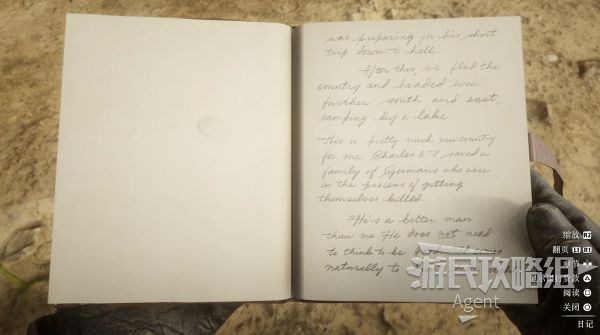 was preparing for his short
trip down to hell.
After this, we fled the
country and headed even
further south and east,
camping by a lake
This is pretty much new country
for me Charles & I saved a
family of Germans who were
in the process of getting
themselves killed.
He's a better man
than me He does not need
to think to be
naturally to
缩放 R2
翻页 L1 R1
阅读
关闭
日记
游民攻略组
Agent